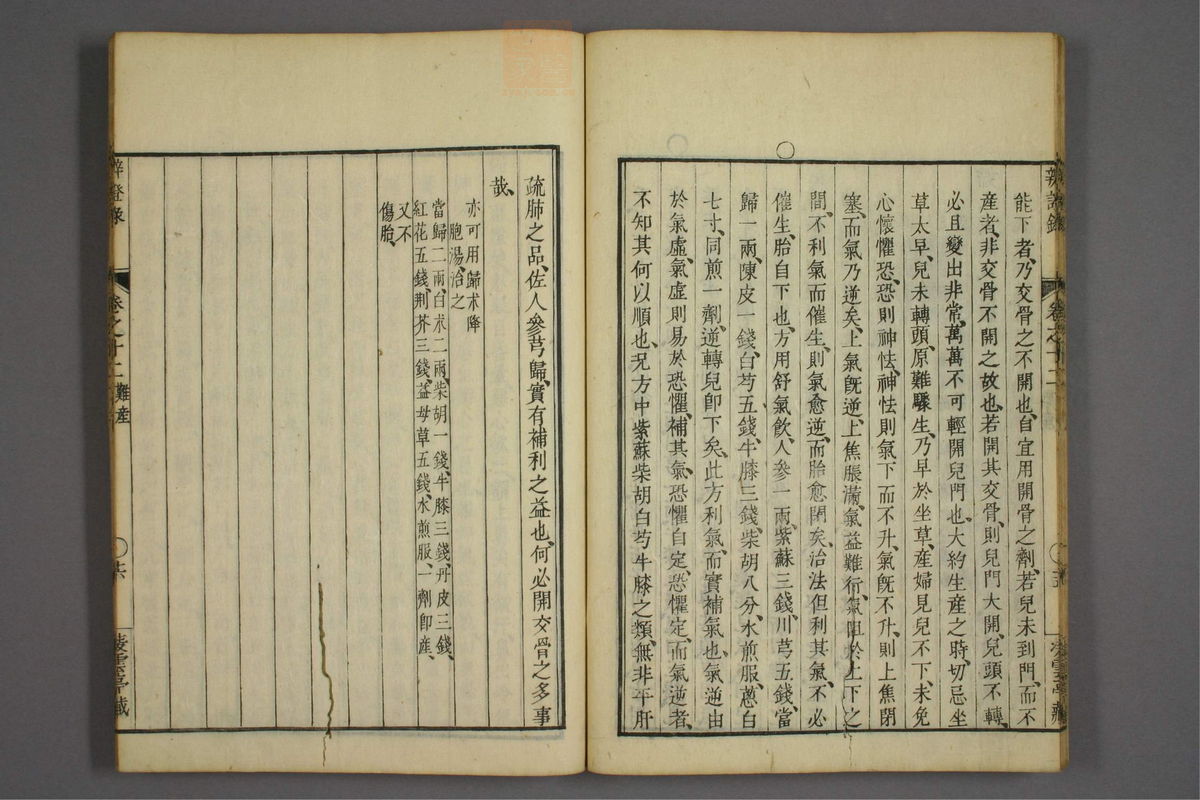 能下者乃交骨之不開也自宜用開骨之劑若兒未到門而不
産者非交骨不開之故也若開其交骨則兒門大開兒頭不轉
必且變出非常萬萬不可輕開兒門也大約生産之時切忌坐
草太早兒未轉頭原難驟生乃早於坐草産婦見兒不下未免
心懷懼恐恐則神怯神怯則氣下而不升氣旣不升則上焦閉
塞而氣乃逆矣上氣旣逆上焦脹滿氣益難行氣阻於上下之
間不利氣而催生則氣愈逆而胎愈閉矣治法但利其氣不必
催生胎自下也方用舒氣飲人參一兩紫蘇三錢川芎五錢當
歸一兩陳皮一錢白芍五錢牛膝三錢柴胡八分水煎服蔥白
七寸同煎一劑逆轉兒卽下矣此方利氣而實補氣也氣逆由
於氣虛氣虛則易於恐懼補其氣恐懼自定恐懼定而氣逆者
不知其何以順也况方中紫蘇柴胡白芍牛膝之類無非平肝
疏肺之品佐人參芎歸實有補利之益也何必開交骨之多事
哉
亦可用歸朮降
胞湯治之
當歸二兩白朮二兩柴胡一錢牛膝三錢丹皮三錢
紅花五錢荆芥三錢益母草五錢水煎服一劑卽産
又不
傷胎
辨證錄
卷之十二 難産
六
凌雲亭藏